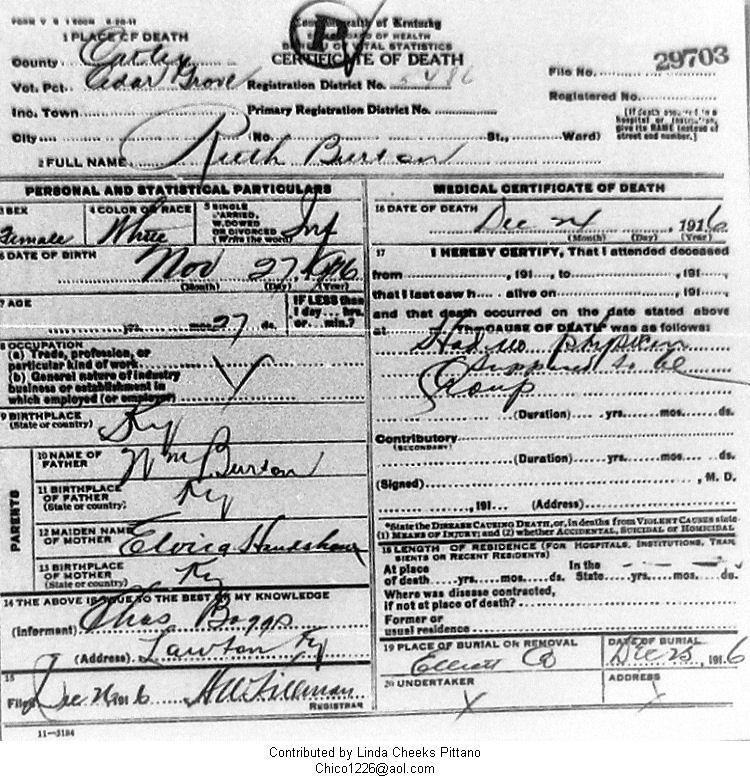 FORM V S 1
Commonwealth of Kentucky
BOARD OF HEALTH
BUREAU OF VITAL STATISTICS
CERTIFICATE OF DEATH
1 PLACE OF DEATH
County Carter
Vot. Pct. Cedar Grove Registration District No.
File No. 29703
Inc. Town Primary Registration District No.
Registered No.
City (No. St., Ward)
[If death occurred in a
hospital or institution,
give its NAME instead of
street and number.]
2 FULL NAME Ruth Burton
PERSONAL AND STATISTICAL PARTICULARS
3 SEX
Female
4 COLOR OR RACE
White
5 SINGLE
MARRIED,
WIDOWED
OR DIVORCED
(Write the word) Inf
6 DATE OF BIRTH
Nov 27, 1916
(Month) (Day) (Year)
7 AGE
yrs. mos. 27 ds.
IF LESS than
1 day... hrs.
or... min.?
8 OCCUPATION
(a) Trade, profession, or
particular kind of work
(b) General nature of industry
business or establishment in
which employed (or employer)
9 BIRTHPLACE
(State or country) Ky
PARENTS
10 NAME OF
FATHER Wm Burton
11 BIRTHPLACE
OF FATHER
(State or country) Ky
12 MAIDEN NAME
OF MOTHER
13 BIRTHPLACE
OF MOTHER
(State or country) Ky
14 THE ABOVE IS TRUE TO THE BEST OF MY KNOWLEDGE
(Informant) Chas Boggs
(Address) Lawton Ky
15
Filed Dec 26 1916
REGISTRAR
11—3184
MEDICAL CERTIFICATE OF DEATH
16 DATE OF DEATH
Dec 24, 1916
(Month) (Day) (Year)
17 I HEREBY CERTIFY, That I attended deceased
from , 191 , to , 191 ,
that I last saw h alive on , 191 ,
and that death occurred on the date stated above
at The CAUSE OF DEATH* was as follows:
Had no physician
Supposed to be
Croup
(Duration) yrs. mos. ds.
Contributory
(SECONDARY)
(Duration) yrs. mos. ds.
(Signed) , M. D.
, 191 (Address)
*State the DISEASE CAUSING DEATH, or, in deaths from VIOLENT CAUSES state
(1) MEANS OF INJURY; and (2) whether ACCIDENTAL, SUICIDAL or HOMICIDAL
18 LENGTH OF RESIDENCE (FOR HOSPITALS, INSTITUTIONS, TRAN
SIENTS OR RECENT RESIDENTS)
At place In the
of death yrs. mos. ds. State yrs. mos. ds.
Where was disease contracted,
if not at place of death?
Former or
usual residence
19 PLACE OF BURIAL OR REMOVAL
Elliott Co
DATE OF BURIAL
Dec 25, 1916
20 UNDERTAKER
X
ADDRESS
X
Contributed by Linda Cheeks Pittano
Chico1226@aol.com